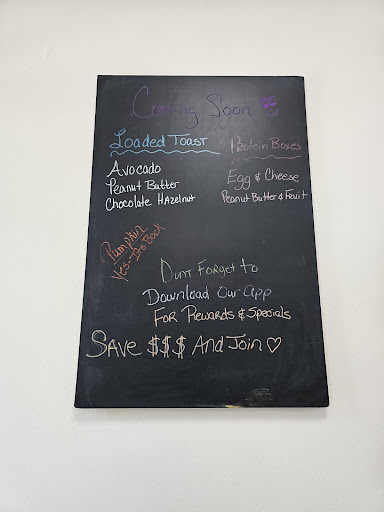 Coming Soon
Loaded Toast
Avocado
Peanut Butter
Chocolate Hazelnut
Protein Boxes
Egg & Cheese
Peanut Butter & Fruit
Pumpkin
Yes-It's Back
Dont Forget to
Download Our App
For Rewards & Specials
Save $$$ And Join ♡